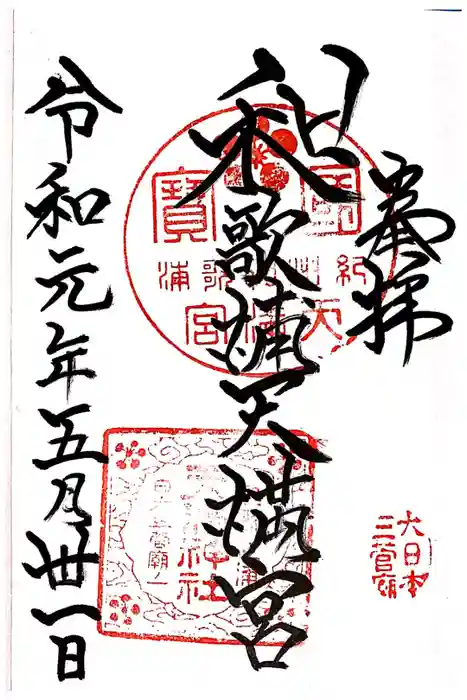 奉拝
和歌浦天満宮
令和元年五月卅一日
國寶
紀州
歌浦
天満宮
大日本
三菅廟
神社